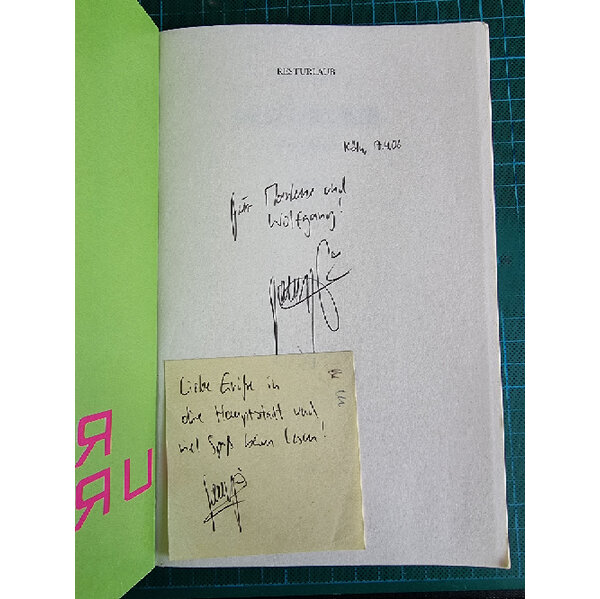 RESTURLAUB
Köln,
für Marlene und
Wolfgang!
Liebe Grüße in
die Hauptstadt und
viel Spaß beim Lesen!
R
UR